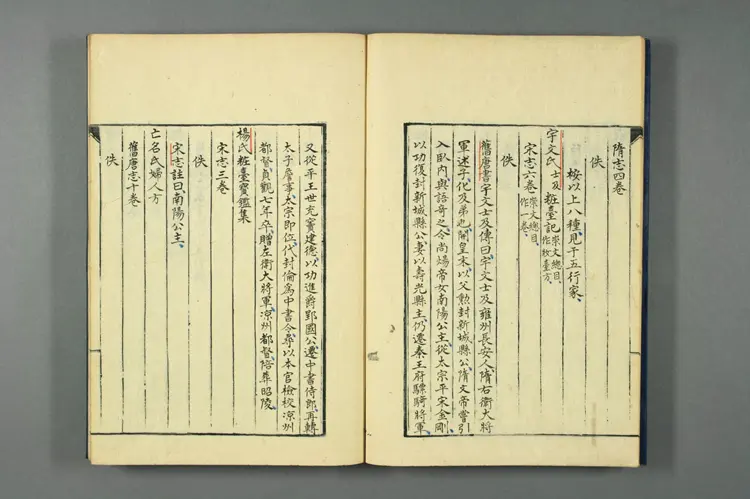 隋志四卷
佚
按以上八種、見于五行家、
宇文氏士及粧臺記崇文總目、作枚臺方、
宋志六卷崇文總目、作一卷、
佚
舊唐書宇文士及傳曰、宇文士及雍州長安人、隋右衛大將
軍述子、化及弟也、開皇末、以父勲封新城縣公、隋文帝嘗引
入臥内、與語奇之、令尚煬帝女南陽公主、從太宗平宋金剛、
以功復封新城縣公、妻以壽光縣主、仍遷秦王府驃騎將軍、
又從平王世充竇建德、以功進爵郢國公、遷中書侍郎、再轉
太子詹事、太宗即位、代封倫爲中書令、尋以本官檢校凉州
都督、貞觀七年卒、贈左衛大將軍、凉州都督、陪葬昭陵、
楊氏粧臺寶鑑集
宋志三卷
佚
宋志註曰、南陽公主、
亡名氏婦人方
舊唐志十卷
佚